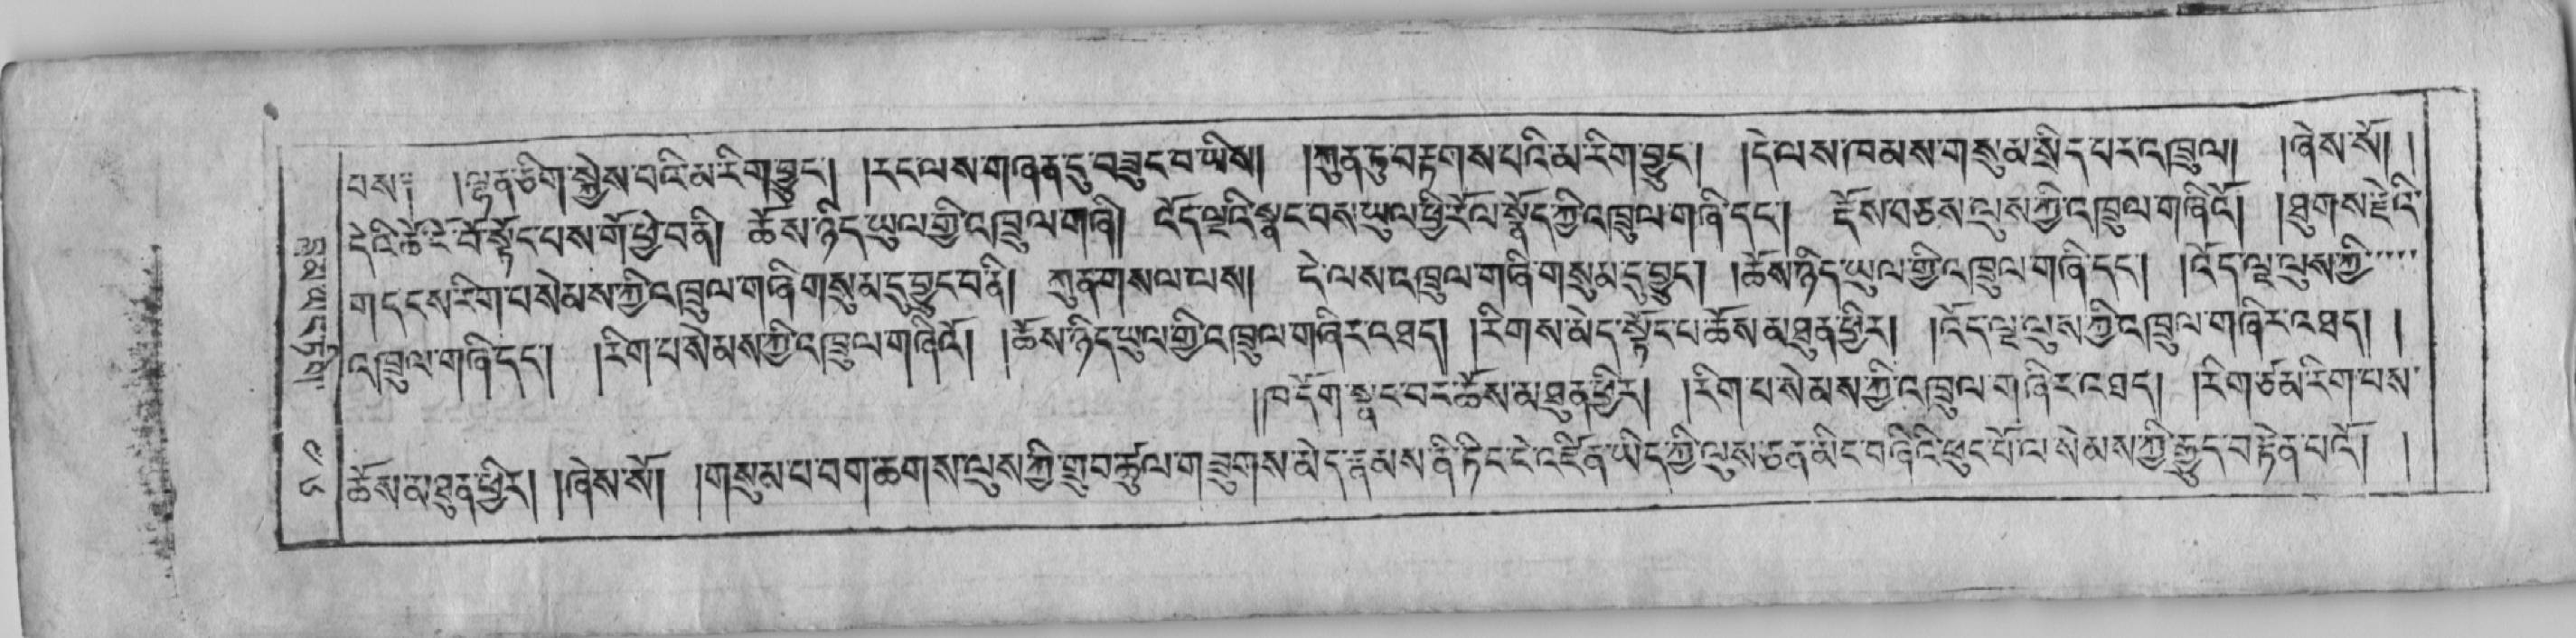 པས༔ །ལྷན་ཅིག་སྐྱེས་པའི་མ་རིག་བྱུང་། །རང་ལས་གཞན་དུ་བཟུང་བ་ཡིས། །ཀུན་ཏུ་བརྟགས་པའི་མ་རིག་བྱུང་། །དེ་ལས་ཁམས་གསུམ་སྲིད་པར་འཁྲུལ། །ཞེས་སོ། །
དེའི་ཚེ་ངོ་བོ་སྟོང་པས་གོ་ཕྱེ་བནི། ཆོས་ཉིད་ཡུལ་གྱི་འཁྲུལ་གཞི། འོད་ལྔའི་སྣང་བས་ཡུལ་ཕྱི་རོལ་སྣོད་ཀྱི་འཁྲུལ་གཞི་དང་། དོས་བཅས་ལུས་ཀྱི་འཁྲུལ་གཞིའོ། །ཐུགས་རྗེའི་
གདངས་རིག་པ་སེམས་ཀྱི་འཁྲུལ་གཞི་གསུམ་དུ་བྱུང་བནི། ཀུན་གསལ་ལས། དེ་ལས་འཁྲུལ་གཞི་གསུམ་དུ་བྱུང་། །ཆོས་ཉིད་ཡུལ་གྱི་འཁྲུལ་གཞི་དང་། །འོད་ལྔ་ལུས་ཀྱི་....
འཁྲུལ་གཞི་དང་། །རིག་པ་སེམས་ཀྱི་འཁྲུལ་གཞིའོ། །ཆོས་ཉིད་ཡུལ་གྱི་འཁྲུལ་གཞིར་འཐད། །རིགས་མེད་སྟོང་པ་ཆོས་མཐུན་ཕྱིར། །འོད་ལྔ་ལུས་ཀྱི་འཁྲུལ་གཞིར་འཐད། །
།ཁ་དོག་སྣང་བར་ཆོས་མཐུན་ཕྱིར། །རིག་པ་སེམས་ཀྱི་འཁྲུལ་གཞིར་འཐད། །རིག་ཙམ་རིག་པས་
ཆོས་མཐུན་ཕྱིར། །ཞེས་སོ། །གསུམ་པ་བག་ཆགས་ལུས་ཀྱི་གྲུབ་ཚུལ་གཟུགས་མེད་རྣམས་ནི་ཏིང་ངེ་འཛིན་ཡིད་ཀྱི་ལུས་ཅན་མིང་བཞིའི་ཕུང་པོ་ལ་སེམས་ཀྱི་རྒྱུད་བརྟེན་པའོ། །